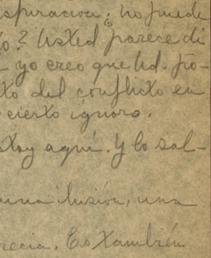 spiración; no puede
to? Usted parece di
- yo creo que Ud. po-
to del conflicto en
cierto ignoro.
stoy aquí. Y lo sal-
una ilusión, una
recia. Es también